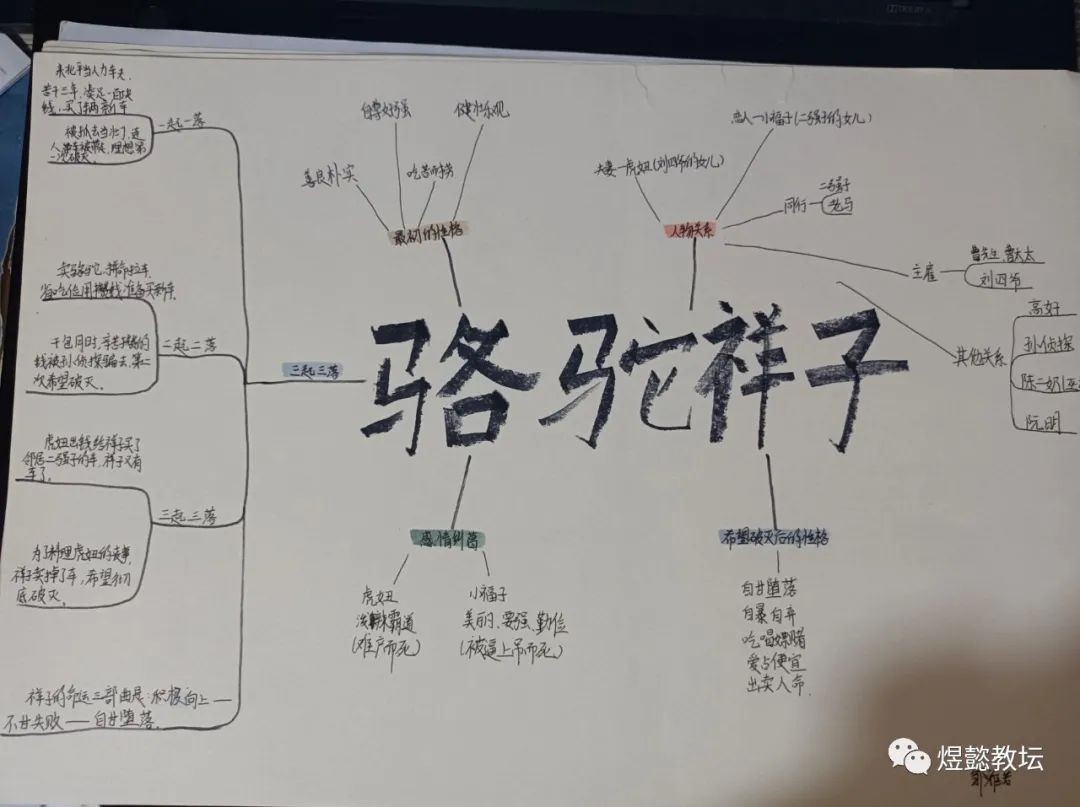 骆驼祥子
三起三落
一起一落
来北平当人力车夫,
苦干三年,凑足一百块
钱,买了辆新车
被抓去当壮丁,连
人带车被带走,理想第
一次破灭。
二起二落
卖骆驼,拼命拉车,
省吃俭用攒钱,准备买新车。
干包月时,辛苦攒的
钱被孙侦探骗去,第二
次希望破灭。
三起三落
虎妞出钱给祥子买了
邻居二强子的车,祥子又有
车了。
为了料理虎妞的丧事,
祥子卖掉了车,希望彻
底破灭。
祥子的命运三部曲是:积极向上—
不甘失败—自甘堕落。
最初的性格
善良朴实
自尊好强
吃苦耐劳
健壮乐观
人物关系
夫妻—虎妞(刘四爷的女儿)
恋人—小福子(二强子的女儿)
同行
二强子
老马
主雇
曹先生、曹太太
刘四爷
其他关系
高妈
孙侦探
陈二奶
阮明
感情纠葛
虎妞
泼辣霸道
(难产而死)
小福子
美丽、要强、勤俭
(被逼上吊而死)
希望破灭后的性格
自甘堕落
自暴自弃
吃喝嫖赌
爱占便宜
出卖人命.
煜懿教坛